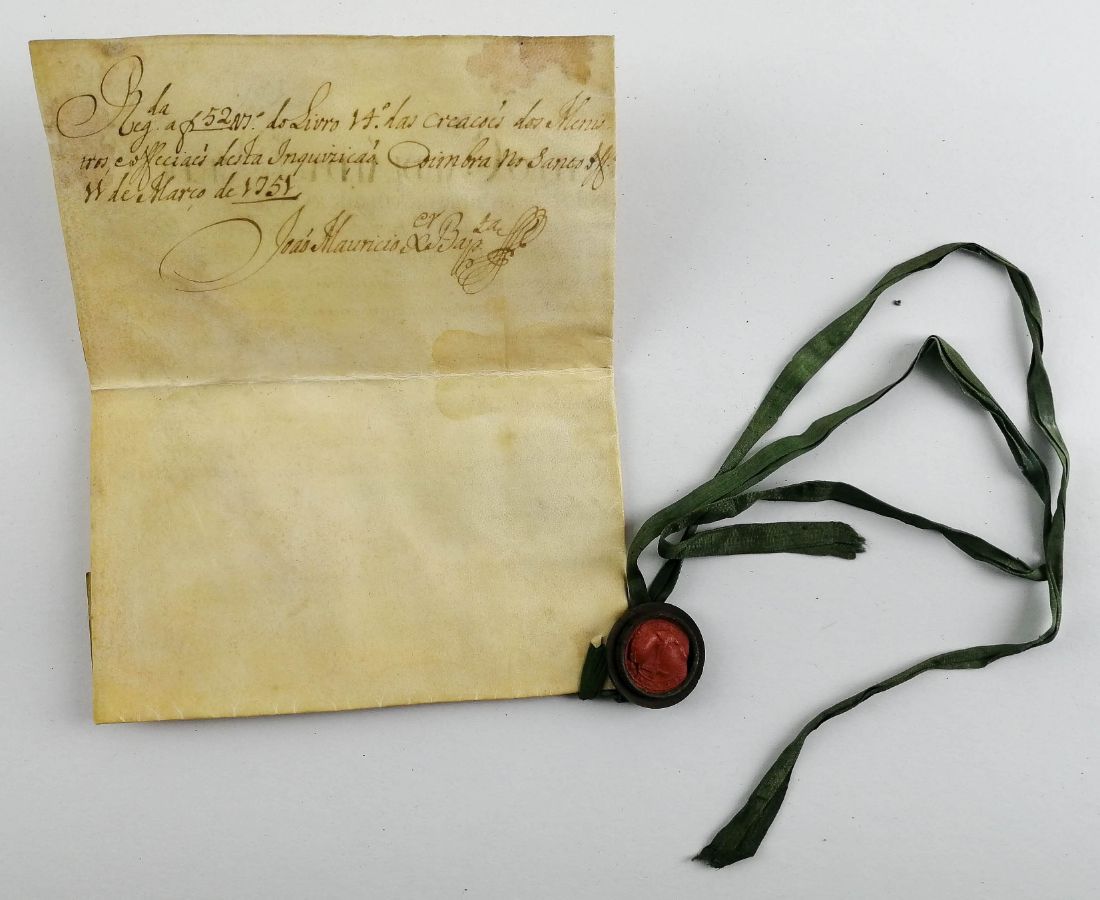 Reg.da a f 52 V.º do Livro 14.º das creacoés dos Menis
tros, e officiaés desta Inquizicaó, Coimbra no Santo Off.º
11 de Março de 1751
Joaó Mauricio